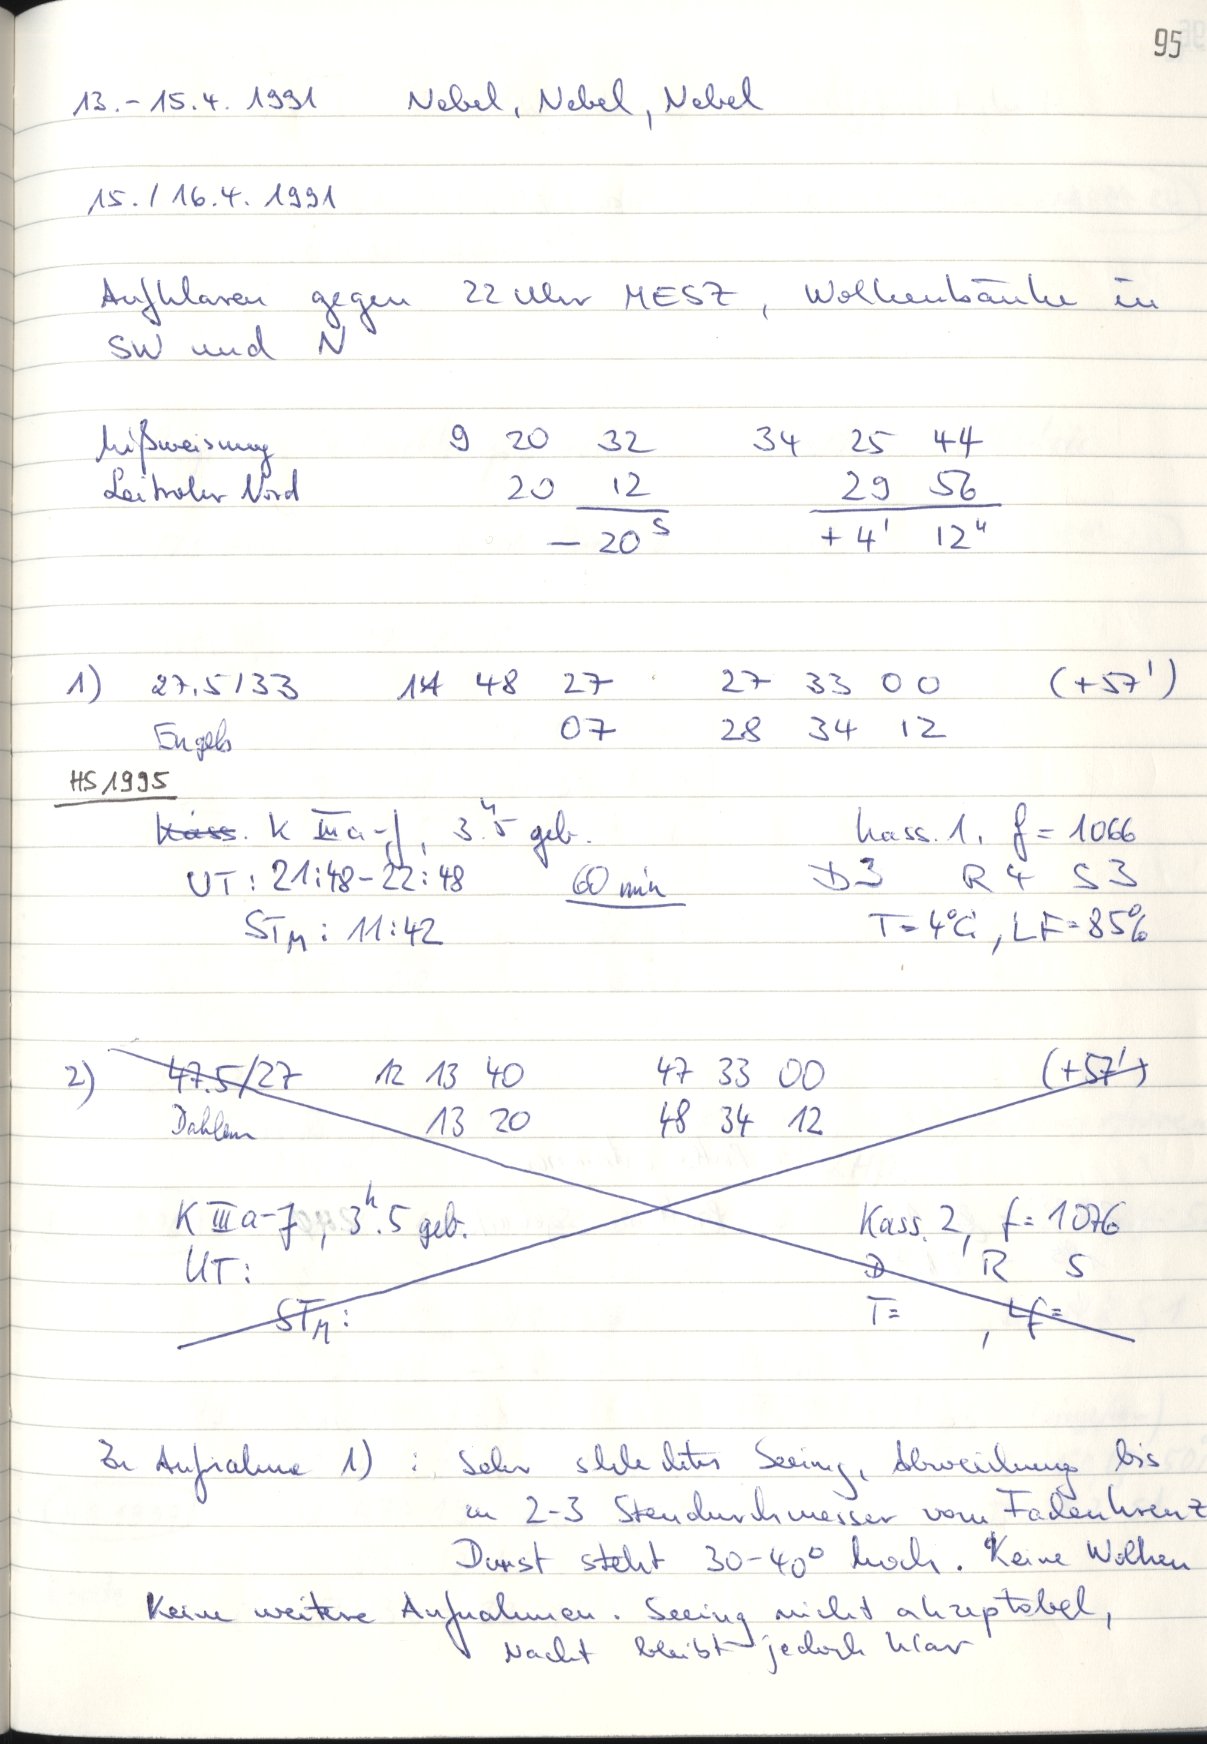 95
13.-15.4.1991 Nebel, Nebel, Nebel
15./16.4.1991
Aufklaren gegen 22 Uhr MESZ, Wolkenbänke in
SW und N
Mißweisung 9 20 32 34 25 44
Leitrohr Nord 20 12 29 56
- 20s +4' 12"
1) 27.5/33 14 48 27 27 33 00 (+57')
Engels 07 28 34 12
HS 1995
Kass. K IIIa-J, 3h.5 geb. Kass. 1, f = 1066
UT: 21:48-22:48 60 min D3 R4 S3
STM: 11:42 T=4°C, LF=85%
2) 47.5/27 12 13 40 47 33 00 (+57')
Dahlem 13 20 48 34 12
K IIIa-J, 3h.5 geb. Kass. 2, f = 1076
UT: D R S
STM: T= , LF=
Zu Aufnahme 1) : Sehr schlechtes Seeing, Abweichung bis
zu 2-3 Sterndurchmesser vom Fadenkreuz
Dunst steht 30-40° hoch. Keine Wolken
Keine weitere Aufnahmen. Seeing nicht akzeptabel,
Nacht bleibt jedoch klar